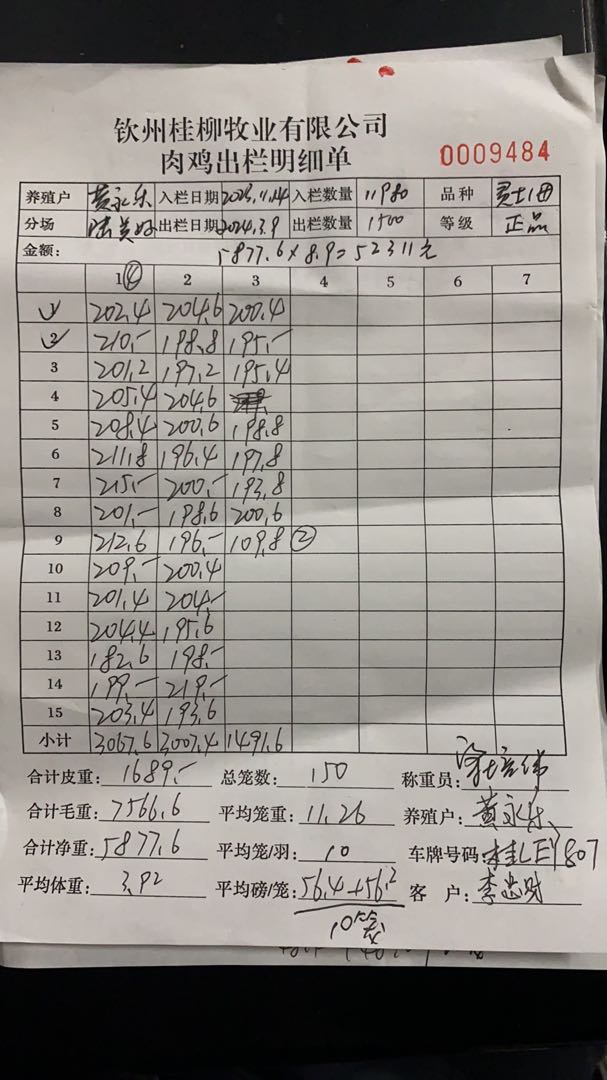 钦州桂柳牧业有限公司
肉鸡出栏明细单 0009484
养殖户 黄永乐 入栏日期 2023.11.14 入栏数量 11980 品种
分场 出栏日期 2024.3.9 出栏数量 1500 等级 正品
金额: 5877.6×8.9=52311元
1④ 2 3 4 5 6 7
1 202.4 204.6 200.4
2 210.- 198.8 195.-
3 201.2 197.2 195.4
4 205.4 204.6
5 208.4 200.6 198.8
6 211.8 196.4 197.8
7 215.- 200.- 193.8
8 201.- 198.6 200.6
9 212.6 196.- 109.8 ②
10 209.- 200.4
11 201.4 204.-
12 204.4 195.6
13 182.6 198.-
14 199.- 219.-
15 203.4 193.6
小计 3067.6 3007.4 1491.6
合计皮重: 1689.- 总笼数: 150 称重员:
合计毛重: 7566.6 平均笼重: 11.26 养殖户: 黄永乐
合计净重: 5877.6 平均笼/羽: 10 车牌号码: 桂LEY807
平均体重: 3.92 平均磅/笼: 56.4+56.2 客 户: 李忠财
10笼